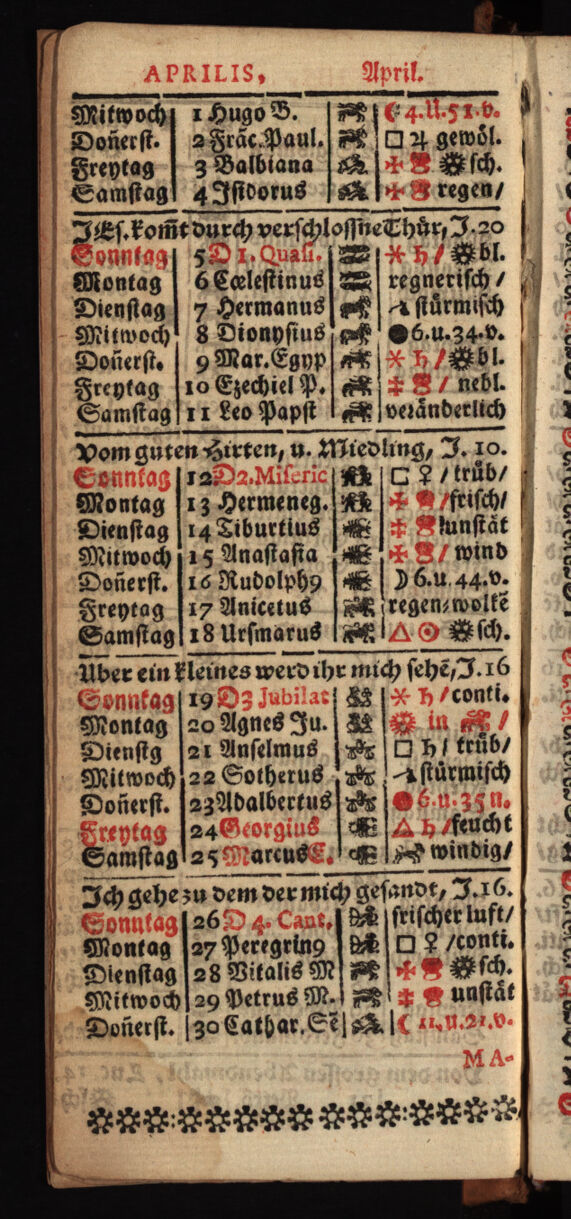 APRILIS, April.
Mitwoch 1 Hugo B. ☾ 4.U.51.v.
Doñerst. 2 Frãc.Paul. □ ♃ gewöl.
Freytag 3 Balbiana sch.
Samstag 4 Isidorus regen/
JEs. kom̃t durch verschlossne Thür, J.20
Sonntag 5 D 1. Quasi. ⚹ ♄ / bl.
Montag 6 Cœlestinus regnerisch /
Dienstag 7 Hermanus stürmisch
Mitwoch 8 Dionysius ● 6.u.34.v.
Doñerst. 9 Mar.Egyp ⚹ ♄ / bl.
Freytag 10 Ezechiel P. / nebl.
Samstag 11 Leo Papst veränderlich
Vom guten Hirten, u. Miedling, J. 10.
Sonntag 12 D2.Miseric □ ♀ / trüb/
Montag 13 Hermeneg. /frisch/
Dienstag 14 Tiburtius unstät
Mitwoch 15 Anastasia / wind
Doñerst. 16 Rudolph9 ☽ 6.u.44.v.
Freytag 17 Anicetus regen⸗wolkẽ
Samstag 18 Ursmarus △ ☉ sch.
Uber ein kleines werd ihr mich sehẽ, J.16
Sonntag 19 D3 Jubilat ⚹ ♄ /conti.
Montag 20 Agnes Ju. in /
Dienstg 21 Anselmus □ ♄ / trüb/
Mitwoch 22 Sotherus stürmisch
Doñerst. 23 Adalbertus ● 6.u.35 n.
Freytag 24 Georgius △ ♄ /feucht
Samstag 25 Marcus E. windig/
Ich gehe zu dem der mich gesandt, J.16.
Sonntag 26 D 4. Cant. frischer luft/
Montag 27 Peregrin9 □ ♀ /conti.
Dienstag 28 Vitalis M sch.
Mitwoch 29 Petrus M. unstät
Doñerst. 30 Cathar. Sẽ ☾ 11.U.21.v.
MA-